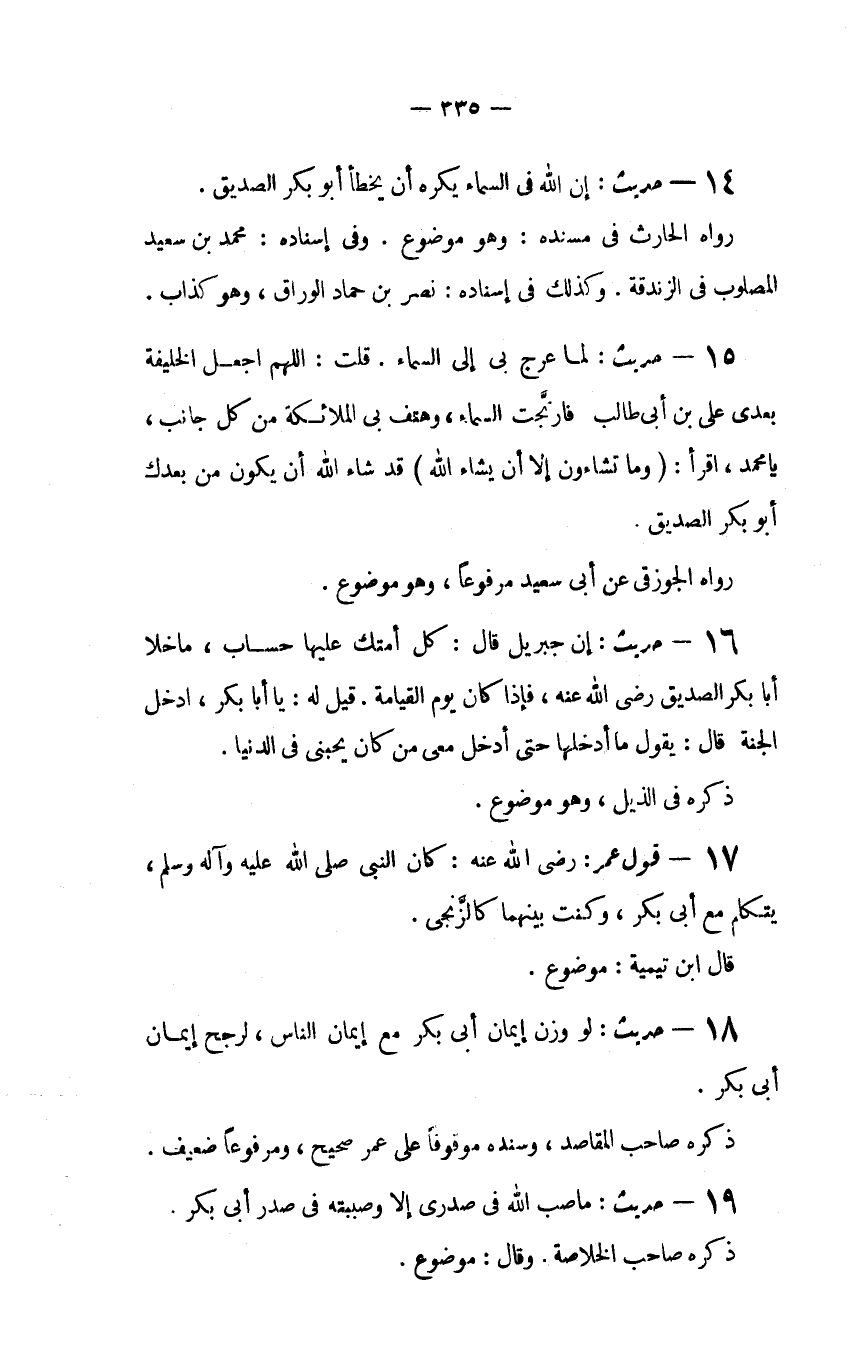 — ٣٣٥ —
١٤ — حديث : إن الله فى السماء يكره أن يخطأ أبو بكر الصديق .
رواه الحارث فى مسنده : وهو موضوع . وفى إسناده : محمد بن سعيد
المصلوب فى الزندقة . وكذلك فى إسناده : نصر بن حماد الوراق ، وهو كذاب .
١٥ — حديث : لما عرج بى إلى السماء . قلت : اللهم اجعـل الخليفة
بعدى على بن أبى طالب فارتَّجت السماء ، وهتف بى الملائـكة من كل جانب ،
يامحمد ، اقرأ : ( وما تشاءون إلا أن يشاء الله ) قد شاء الله أن يكون من بعدك
أبو بكر الصديق .
رواه الجوزقى عن أبى سعيد مرفوعاً ، وهو موضوع .
١٦ — حديث : إن جبريل قال : كل أمتك عليها حسـاب ، ماخلا
أبا بكر الصديق رضى الله عنه ، فإذا كان يوم القيامة . قيل له : يا أبا بكر ، ادخل
الجنة قال : يقول ما أدخلها حتى أدخل معى من كان يحبنى فى الدنيا .
ذكره فى الذيل ، وهو موضوع .
١٧ — قول عمر : رضى الله عنه : كان النبى صلى الله عليه وآله وسلم ،
يتـكلم مع أبى بكر ، وكنت بينهما كالزَّنجى .
قال ابن تيمية : موضوع .
١٨ — حديث : لو وزن إيمان أبى بكر مع إيمان الناس ، لرجح إيمـان
أبى بكر .
ذكره صاحب المقاصد ، وسنده موقوفاً على عمر صحيح ، ومرفوعاً ضعيف .
١٩ — حديث : ماصب الله فى صدرى إلا وصببته فى صدر أبى بكر .
ذكره صاحب الخلاصة . وقال : موضوع .